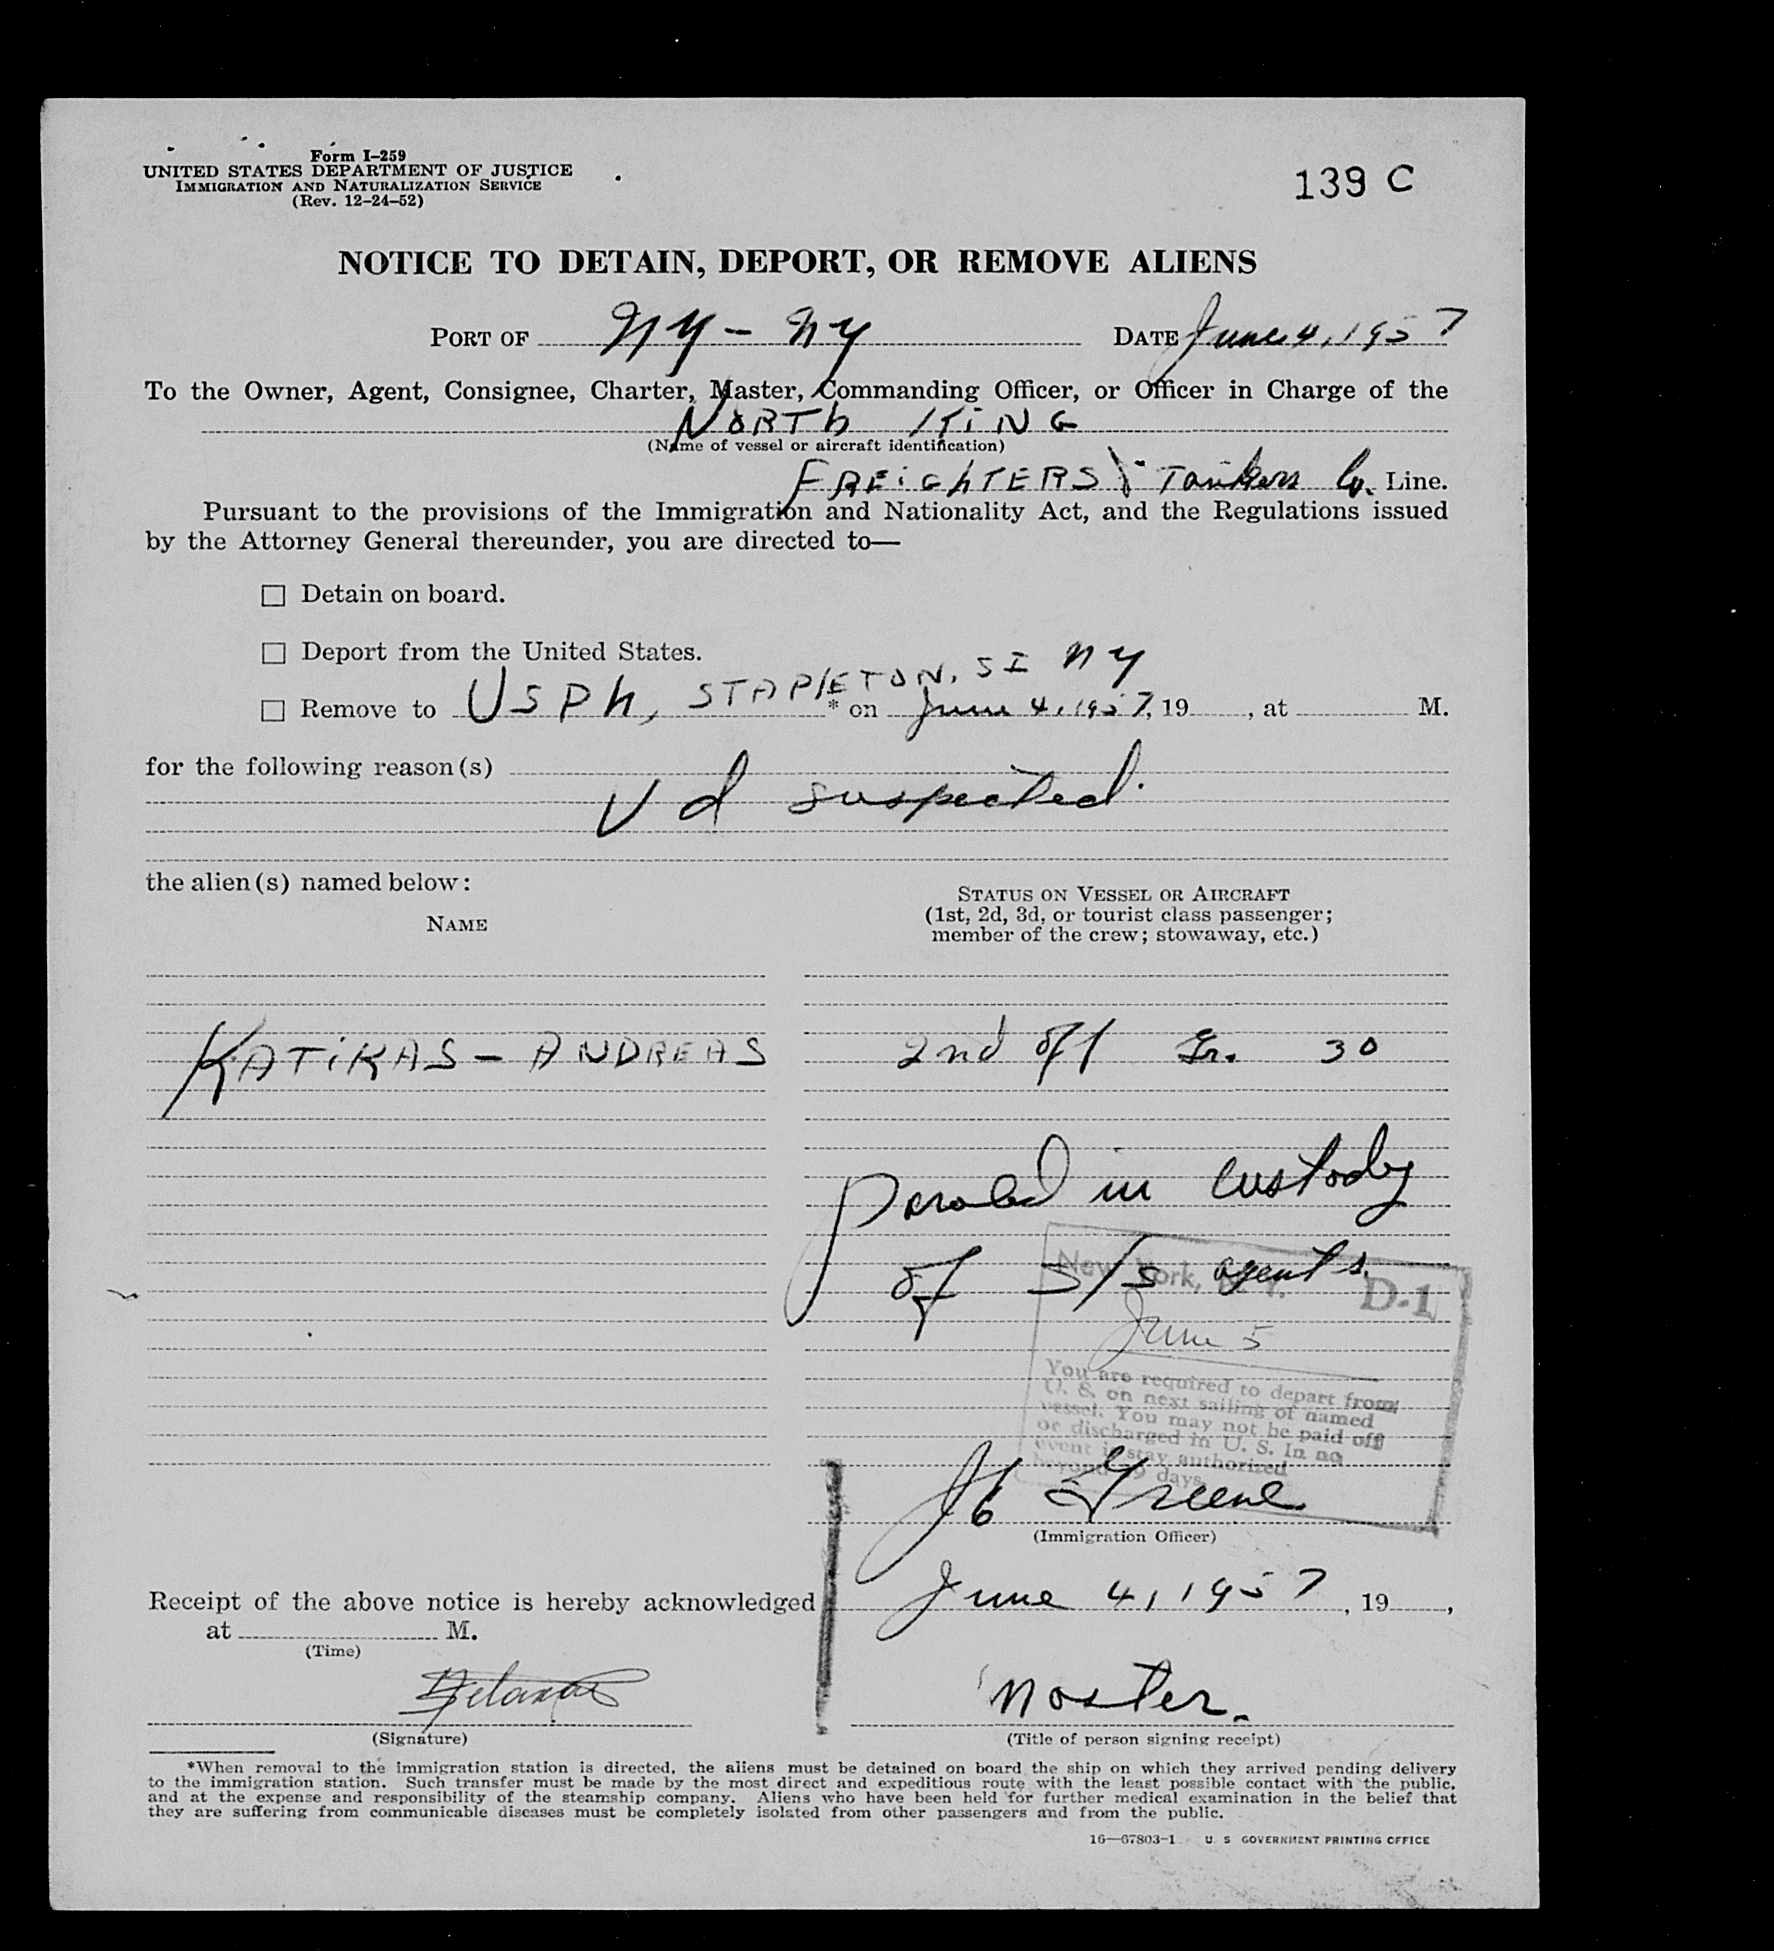 Form I-259
UNITED STATES DEPARTMENT OF JUSTICE
IMMIGRATION AND NATURALIZATION SERVICE
(Rev. 12-24-52)
139 C
NOTICE TO DETAIN, DEPORT, OR REMOVE ALIENS
PORT OF NY - NY DATE June 4, 1957
To the Owner, Agent, Consignee, Charter, Master, Commanding Officer, or Officer in Charge of the
NORTh KiNG
(Name of vessel or aircraft identification)
FREiGhTERS & Tankers Co. Line.
Pursuant to the provisions of the Immigration and Nationality Act, and the Regulations issued
by the Attorney General thereunder, you are directed to—
☐ Detain on board.
☐ Deport from the United States.
☐ Remove to USPh, STAPlETON, SI NY * on June 4, 1957, 19 , at M.
for the following reason(s)
V d suspected.
the alien(s) named below:
NAME
STATUS ON VESSEL OR AIRCRAFT
(1st, 2d, 3d, or tourist class passenger;
member of the crew; stowaway, etc.)
KATiKAS - ANDREAS 2nd off Gr. 30
paroled in custody
of S/S agents.
New York, N. Y. D-1
June 5
You are required to depart from
U. S. on next sailing of named
vessel. You may not be paid off
or discharged in U. S. In no
event is stay authorized
beyond 29 days
Greene
(Immigration Officer)
Receipt of the above notice is hereby acknowledged June 4, 1957, 19 ,
at M.
(Time)
Master.
(Signature) (Title of person signing receipt)
*When removal to the immigration station is directed, the aliens must be detained on board the ship on which they arrived pending delivery
to the immigration station. Such transfer must be made by the most direct and expeditious route with the least possible contact with the public,
and at the expense and responsibility of the steamship company. Aliens who have been held for further medical examination in the belief that
they are suffering from communicable diseases must be completely isolated from other passengers and from the public.
16—67803-1 U. S. GOVERNMENT PRINTING OFFICE